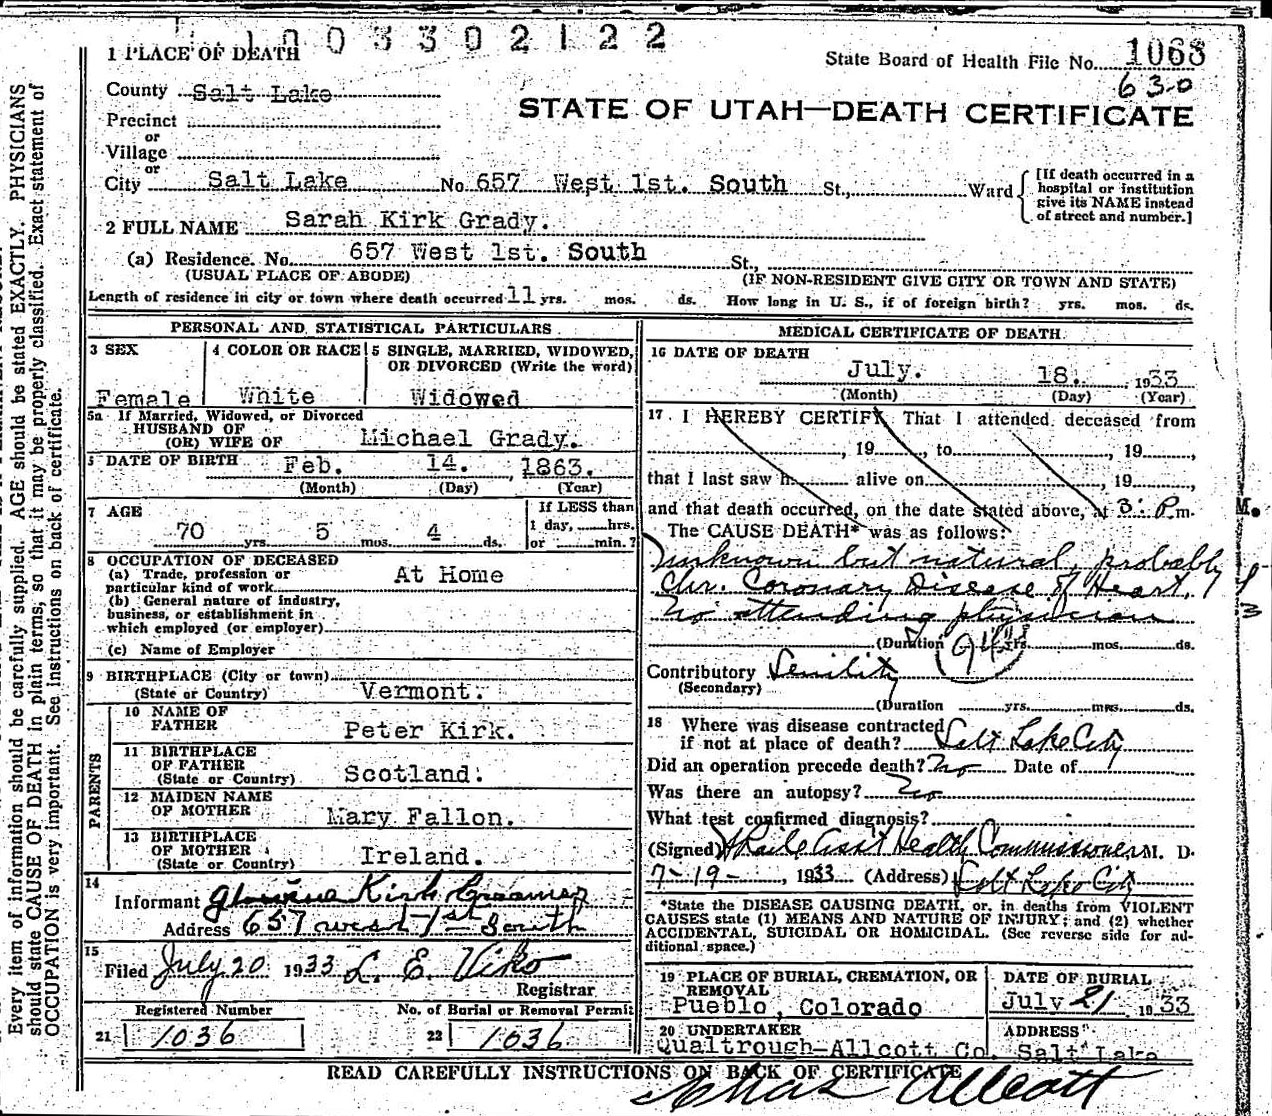 1003302122
1 PLACE OF DEATH
State Board of Health File No. 1068
630
County Salt Lake
STATE OF UTAH—DEATH CERTIFICATE
Precinct
or
Village
or
City Salt Lake No 657 West 1st. South St., Ward
[If death occurred in a
hospital or institution
give its NAME instead
of street and number.]
2 FULL NAME Sarah Kirk Grady.
(a) Residence. No. 657 West 1st. South St.,
(USUAL PLACE OF ABODE) (IF NON-RESIDENT GIVE CITY OR TOWN AND STATE)
Length of residence in city or town where death occurred 11 yrs. mos. ds. How long in U. S., if of foreign birth? yrs. mos. ds.
PERSONAL AND STATISTICAL PARTICULARS
3 SEX
Female
4 COLOR OR RACE
White
5 SINGLE, MARRIED, WIDOWED,
OR DIVORCED (Write the word)
Widowed
5a If Married, Widowed, or Divorced
HUSBAND OF
(OR) WIFE OF Michael Grady.
DATE OF BIRTH Feb. 14. 1863.
(Month) (Day) (Year)
7 AGE
70 yrs. 5 mos. 4 ds.
If LESS than
1 day, hrs.
or min.?
8 OCCUPATION OF DECEASED
(a) Trade, profession or
particular kind of work At Home
(b) General nature of industry,
business, or establishment in
which employed (or employer)
(c) Name of Employer
9 BIRTHPLACE (City or town)
(State or Country) Vermont.
PARENTS
10 NAME OF
FATHER Peter Kirk.
11 BIRTHPLACE
OF FATHER
(State or Country) Scotland.
12 MAIDEN NAME
OF MOTHER Mary Fallon.
13 BIRTHPLACE
OF MOTHER
(State or Country) Ireland.
14
Informant Kirk Creamer
Address 657 West 1st South
15
Filed July 20 1933 L. E. Viko
Registrar
Registered Number No. of Burial or Removal Permit
21 1036 22 1036
MEDICAL CERTIFICATE OF DEATH
16 DATE OF DEATH
July. 18. 1933
(Month) (Day) (Year)
17 I HEREBY CERTIFY That I attended deceased from
, 19 , to , 19 ,
that I last saw h alive on , 19 ,
and that death occurred, on the date stated above, at 3: P.m.
M.
The CAUSE DEATH* was as follows:
Unknown but natural, probably
Chr. Coronary Disease of Heart.
No attending physician
(Duration yrs. mos. ds.
94
Contributory Senility
(Secondary)
(Duration yrs. mos. ds.
18 Where was disease contracted
if not at place of death? Salt Lake City
Did an operation precede death? No Date of
Was there an autopsy? No
What test confirmed diagnosis?
(Signed) Asst Health Commissioner M. D.
7-19-, 1933 (Address) Salt Lake City
*State the DISEASE CAUSING DEATH, or, in deaths from VIOLENT
CAUSES state (1) MEANS AND NATURE OF INJURY; and (2) whether
ACCIDENTAL, SUICIDAL OR HOMICIDAL. (See reverse side for ad-
ditional space.)
19 PLACE OF BURIAL, CREMATION, OR
REMOVAL
Pueblo, Colorado
DATE OF BURIAL
July 21 1933
20 UNDERTAKER
Qualtrough-Allcott Co.
ADDRESS
Salt Lake
READ CAREFULLY INSTRUCTIONS ON BACK OF CERTIFICATE
Chas Allcott
Every item of information should be carefully supplied. AGE should be stated EXACTLY. PHYSICIANS
should state CAUSE OF DEATH in plain terms, so that it may be properly classified. Exact statement of
OCCUPATION is very important. See instructions on back of certificate.